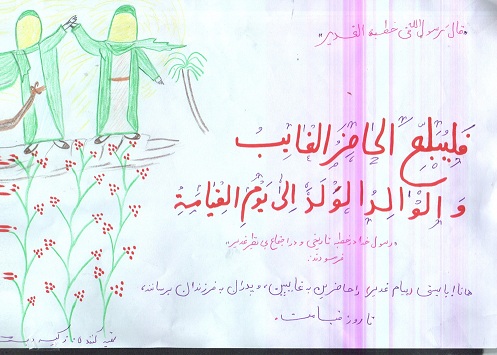 "قال رسول الله فی خطبه الغدیر"
فَلیُبَلِّغِ الحاضِرُ الغائِبَ
وَ الوالِدُ الوَلَدَ إلیٰ یَوْمِ القِیامَةِ
"رسول خدا در خطبه تاریخی و در اجتماع بی نظیر غدیر"
فرمودند:
پیام غدیر را حاضرین به غایبین، و پدران به فرزندان برسانند،
تا روز قیامت.